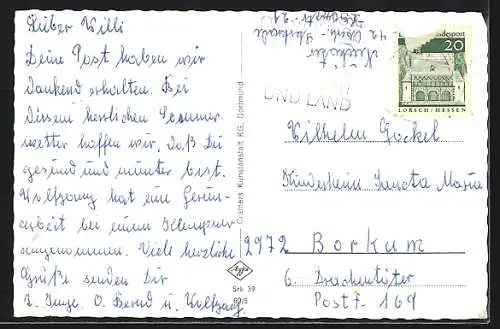 Lieber Willi
Deine Post haben wir
dankend erhalten. Bei
diesem herrlichen Sommer-
wetter hoffen wir, daß Du
gesund und munter bist.
Wolfgang hat eine Ferien-
arbeit bei einem Klempner
angenommen. Viele herzliche
Grüße senden Dir
O. Bernd u. Wolfgang
Cramers Kunstanstalt KG, Dortmund
Agfa
Srk 39
UND LAND
bundespost
20
LORSCH/HESSEN
Wilhelm Göckel
Kinderheim Sancta Maria
2972 Borkum
6.
Postf. 169